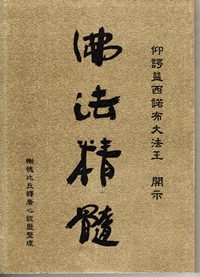 仰諤益西諾布大法王 開示
佛法精髓
慚愧比丘釋 心 整理